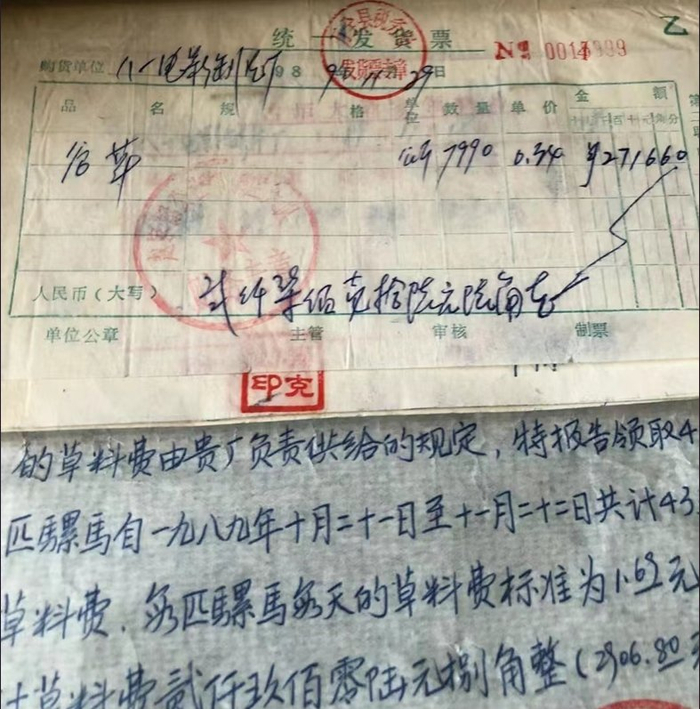 统一发货票
乙
№ 0014999
购货单位 八一电影制片厂 1989年11月29日
品名 规格 单位 数量 单价 金额
谷草 公斤 7990 0.34 ¥271660
人民币(大写) 贰仟柒佰壹拾陆元陆角正
单位公章 主管 审核 制票
印克
的草料费由贵厂负责供给的规定，特报告领取4
匹骡马自一九八九年十月二十一日至十一月二十二日共计43
草料费，每匹骡马每天的草料费标准为1.69元
计草料费贰仟玖佰零陆元捌角整（2906.80